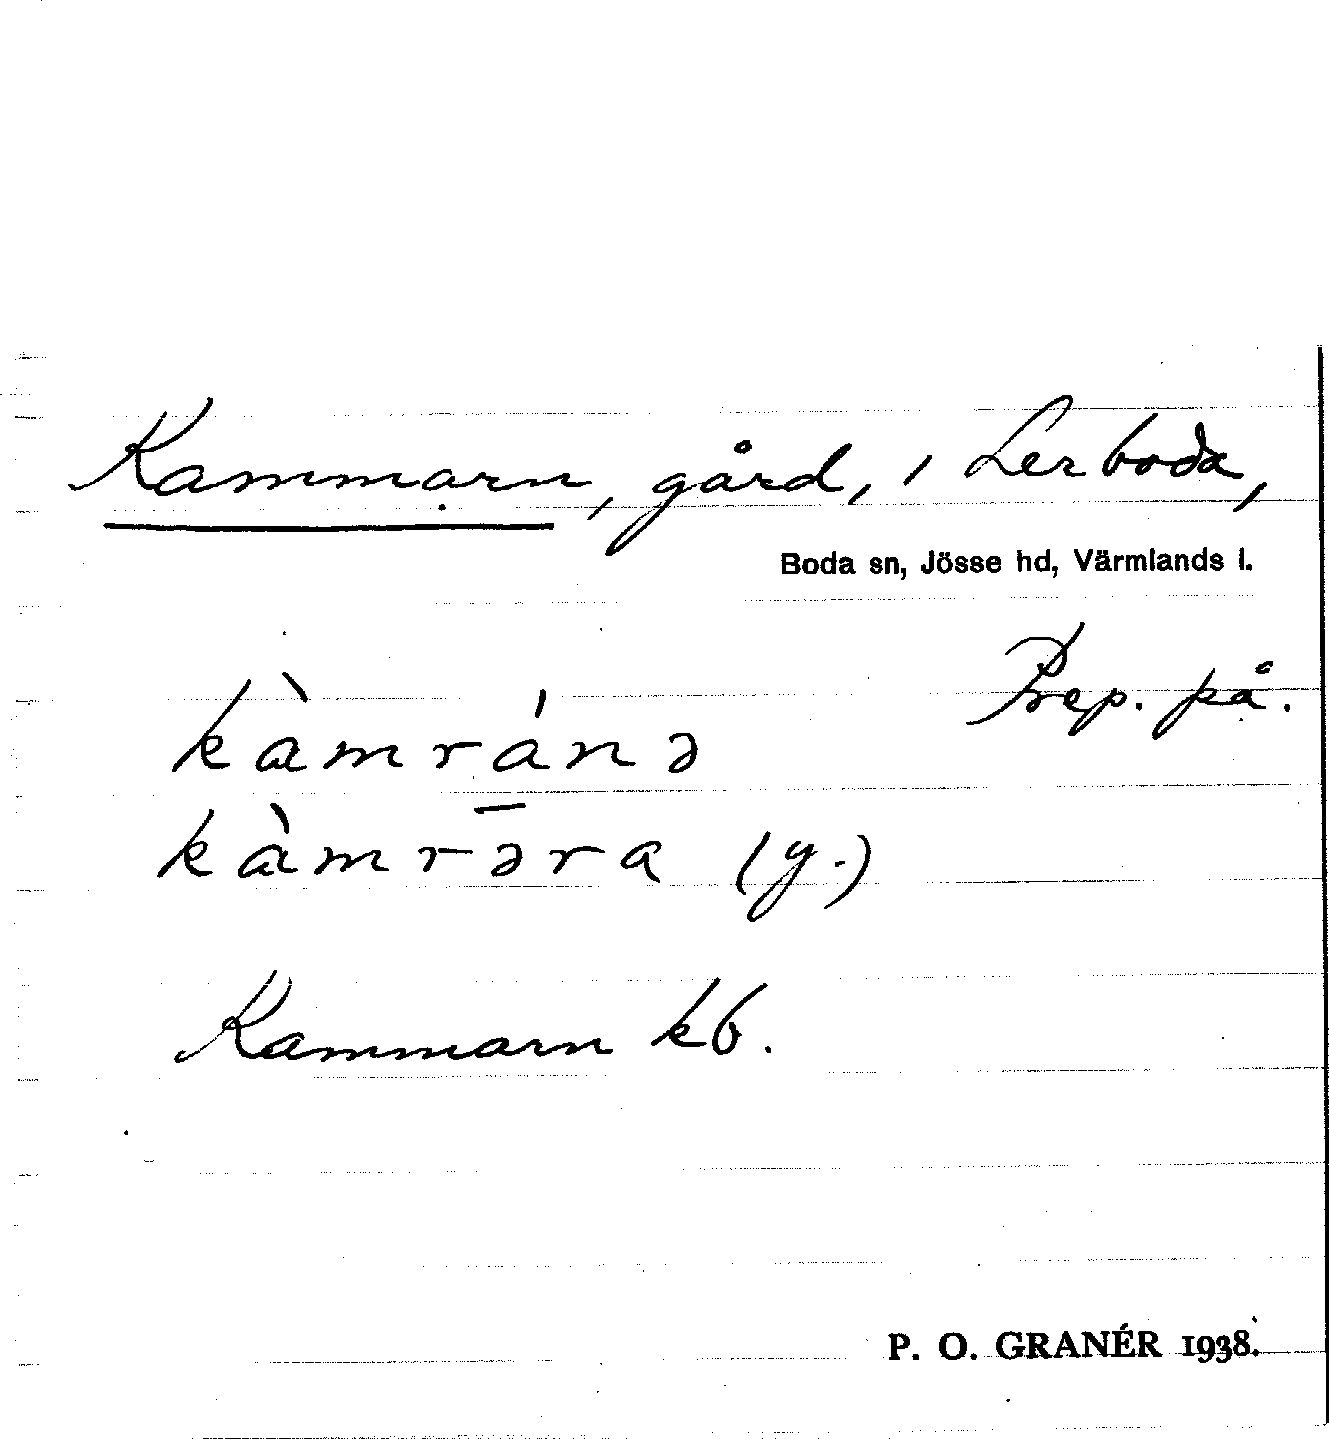 Kammarn, gård, i Lerboda,
Boda sn, Jösse hd, Värmlands l.
Prep. på.
kàmránə
kàmrə̄ra (y.)
Kammarn kb.
P. O. GRANÉR 1938.